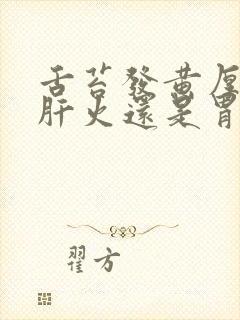 舌苔發黃厚
肝火還是胃
翟方